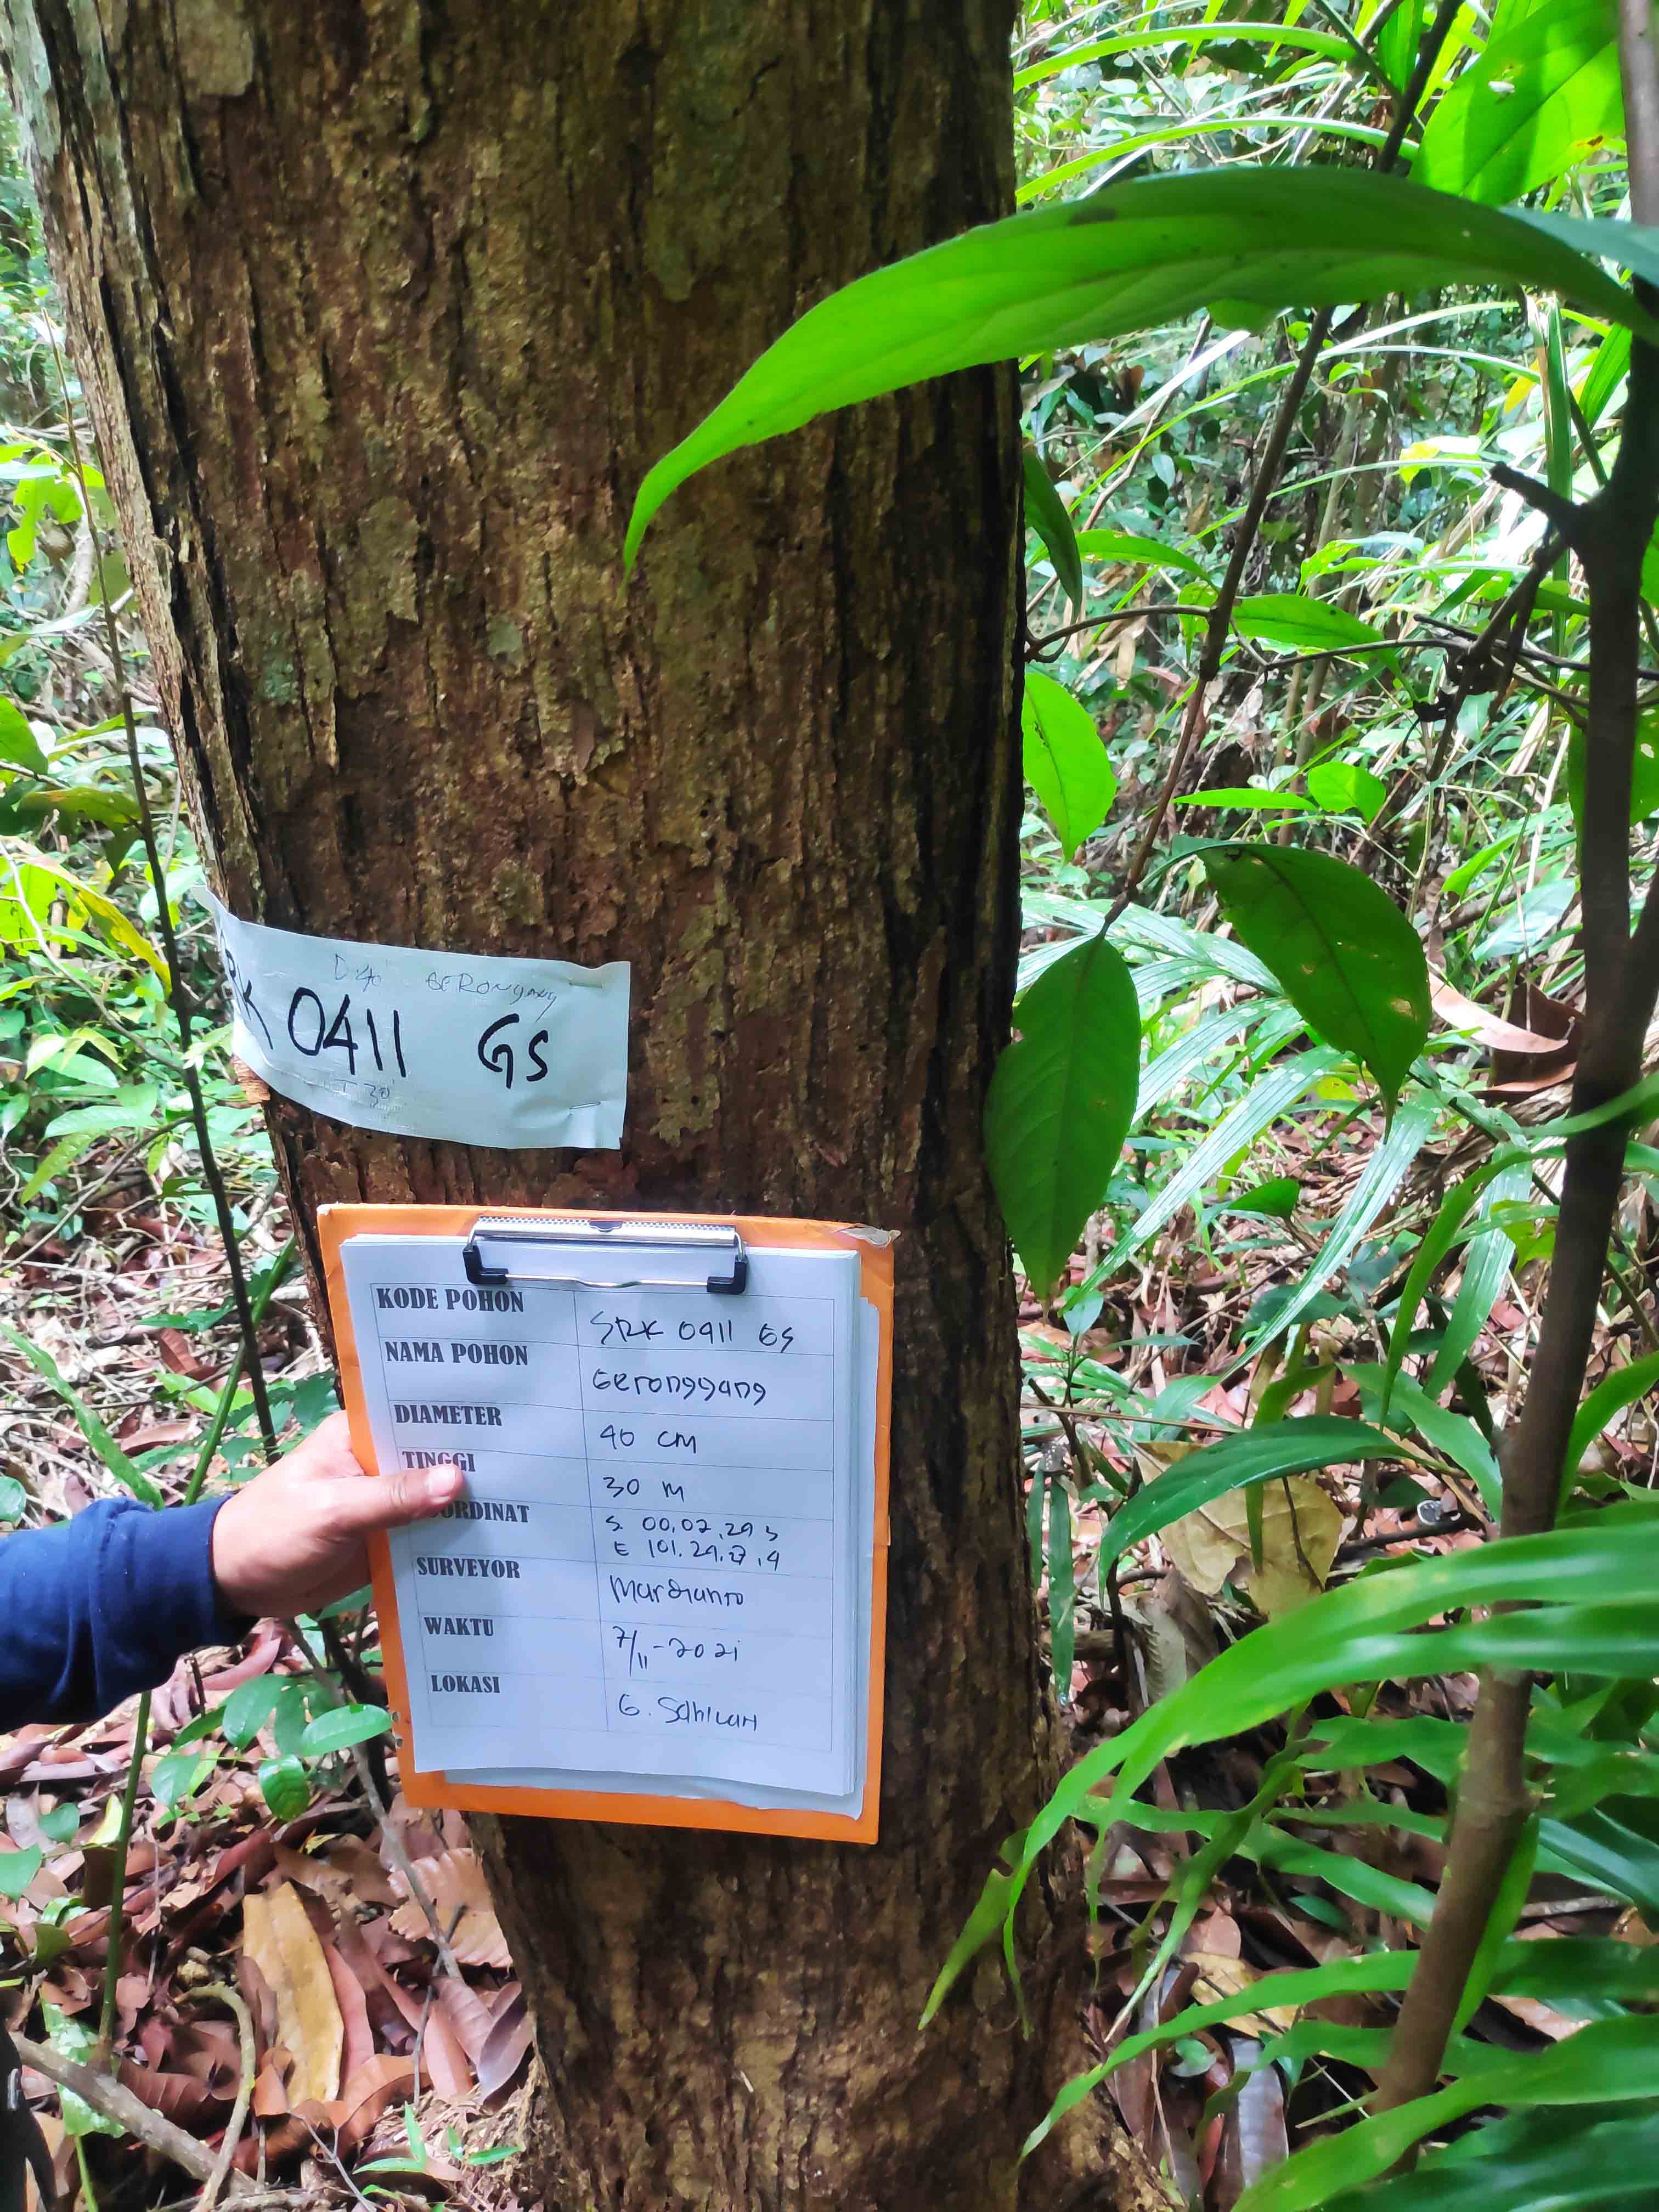 D 40 GERONGANG
RK 0411 GS
T 30
KODE POHON SRK 0411 GS
NAMA POHON Geronggang
DIAMETER 40 CM
TINGGI 30 M
ORDINAT S. 00.02.29,3
E 101.29.27,4
SURVEYOR Mardianto
WAKTU 7/11-2021
LOKASI G. Sahilan